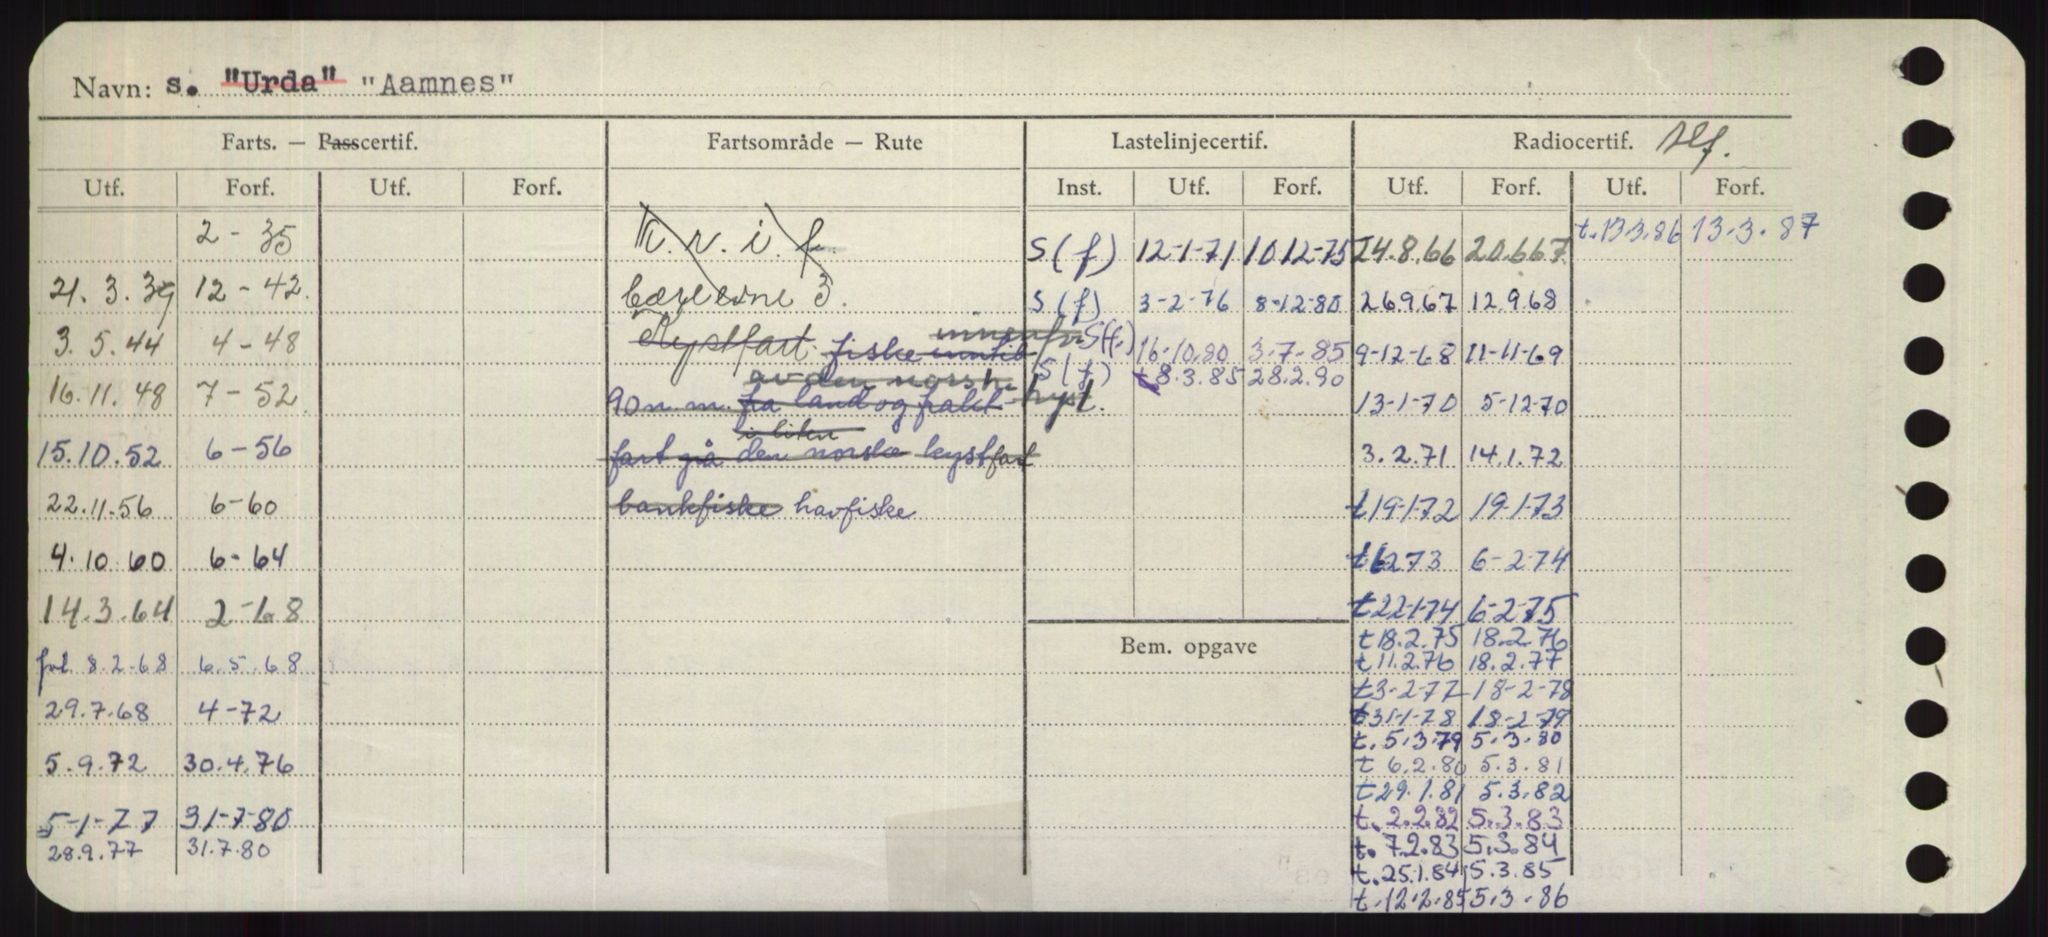 Navn: s. "Urda" "Aamnes"
Farts. — Passcertif. Fartsområde — Rute Lastelinjecertif. Radiocertif. tlf.
Utf. Forf. Utf. Forf. Inst. Utf. Forf. Utf. Forf. Utf. Forf.
2 - 35 K. r. i. f. S (f) 12-1-71 10.12-75 24.8.66 20.6.67 t.13.3.86 13.3.87
21. 3. 39 12 - 42. 3. S (f) 3-2-76 8-12-80 26.9.67 12.9.68
3. 5. 44 4 - 48 Kystfart fiske inntil innenfor S(f) 16-10.80 3-7-85 9-12-68 11-11-69
av den norske S (f) t 8.3.85 28.2.90
16. 11. 48 7 - 52 90 n. m. fra land og frakt kyst. 13-1-70 5-12-70
i liten
15. 10. 52 6 - 56 fart på den norske kystfart 3.2.71 14.1.72
22.11.56 6-60 bankfiske havfiske t 19.1.72 19.1.73
4. 10. 60 6 - 64 t 6.2.73 6-2-74
14. 3. 64 2-68 t 22-1-74 6-2-75
Bem. opgave t 18.2.75 18.2.76
fol. 8.2.68 6.5.68 t 11.2.76 18.2.77
t 3-2-77 18-2-78
29.7.68 4-72 t 31-1-78 18-2-79
t. 5.3.79 5.3.80
5.9.72 30.4.76 t 6.2.80 5.3.81
t 29.1.81 5.3.82
5-1-77 31-7-80 t. 2.2.82 5.3.83
28.9.77 31.7.80 t. 7.2.83 5.3.84
t. 25.1.84 5.3.85
t. 12.2.85 5.3.86